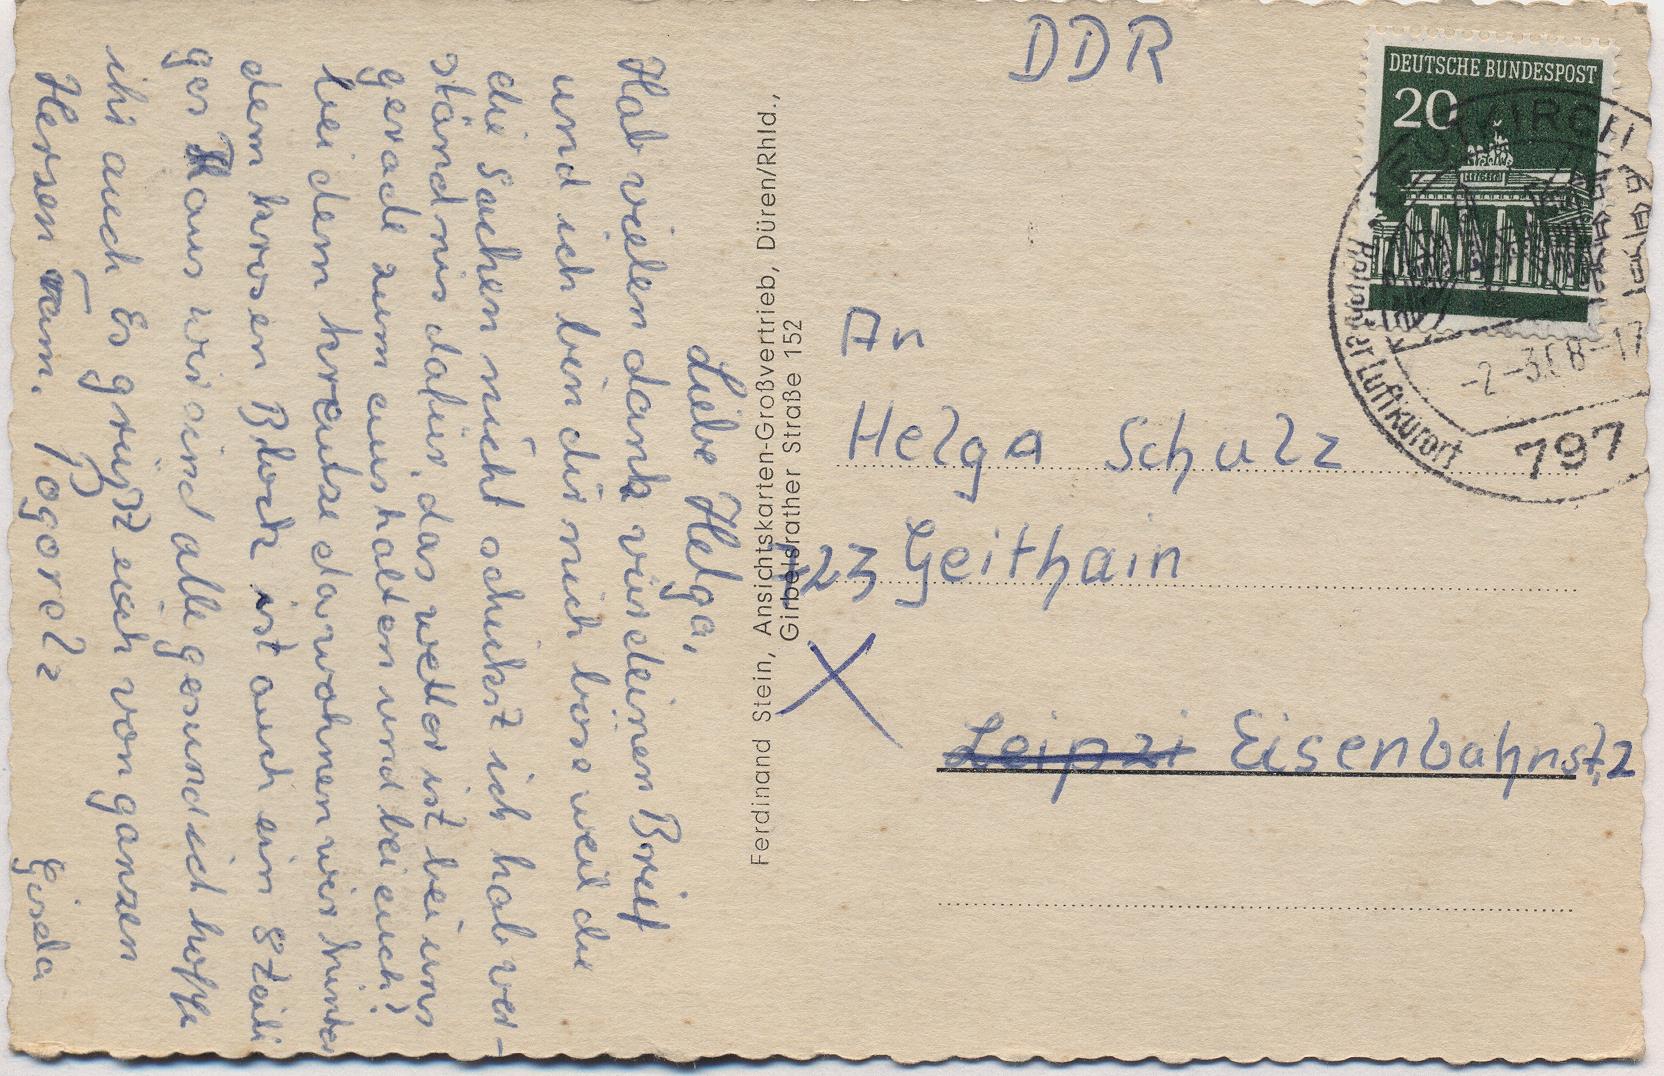 DDR
DEUTSCHE BUNDESPOST
20
LEUTKIRCH
Luftkurort
-2-3.68-17
797
An
Helga Schulz
723 Geithain
X
Leipzi Eisenbahnst. 2
Ferdinand Stein, Ansichtskarten-Großvertrieb, Düren/Rhld.,
Girbelsrather Straße 152
Liebe Helga,
Hab vielen dank vür deinen Brief
und ich bin dir nich böse weil du
die Sachen nicht schickst ich hab ver-
ständnis dafür, das wetter ist bei uns
gerade zum aushalten und bei euch?
bei dem kreutze da wohnen wir hinter
dem krosen Block ist auch ein 8 teili
ges Haus wir sind alle gesund ich hoffe
ihr auch Es grüßt euch von ganzen
Hersen Fam. Pogorelz Gisela